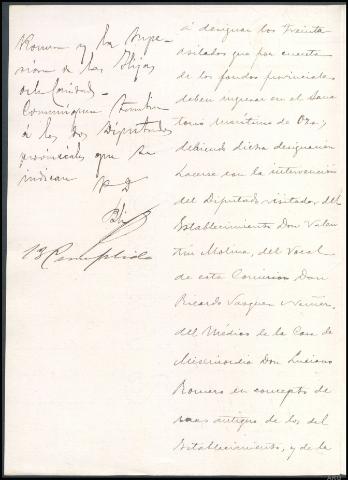 Romero y la Supe-
riora de las Hijas
de la Caridad.
Comuníquese también
á los dos Diputados
provinciales que se
indican
P D
13 Cumplido
á designar los treinta
asilados que por cuenta
de los fondos provinciales
deben ingresar en el Sana
torio marítimo de Oza,
debiendo dicha designacion
hacerse con la intervencion
del Diputado visitador del
Establecimiento Don Valen
tin Molina, del Vocal
de esta Comision Don
Ricardo Vazquez
del Médico de la Casa de
Misericordia Don Luciano
Romero en concepto de
mas antiguo de los del
Establecimiento, y de la